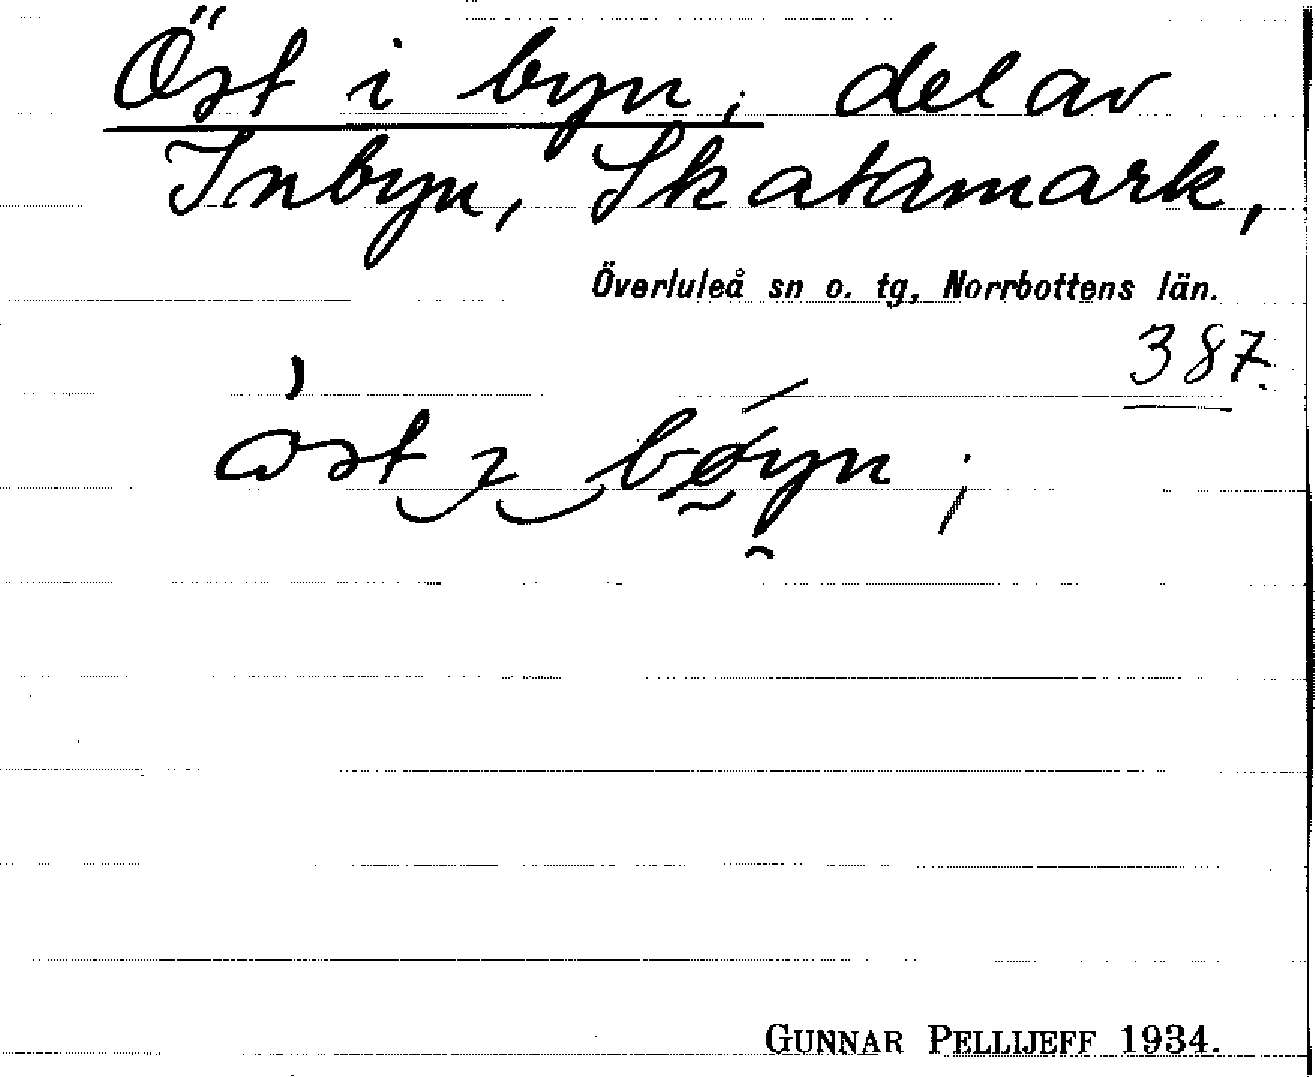 Öst i byn; del av
Inbyn, Skatamark,
Överluleå sn o. tg, Norrbottens län.
387.
öst ɿ bøyn ;
GUNNAR PELLIJEFF 1934.